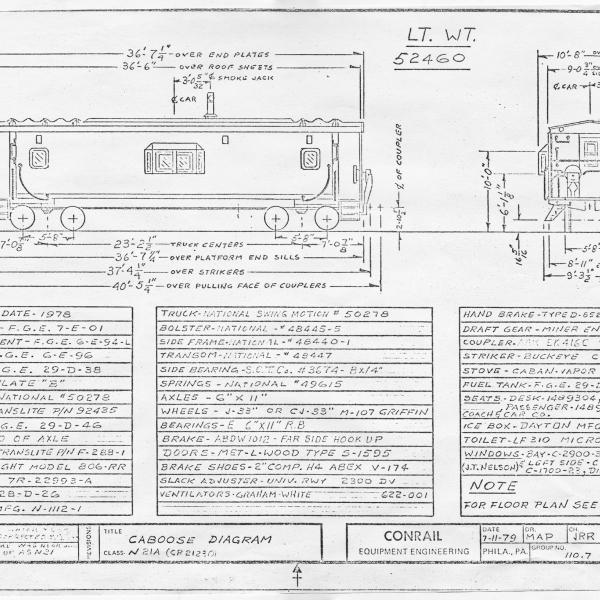 LT. WT.
52460
36'-7 1/4" OVER END PLATES
36'-6" OVER ROOF SHEETS
3'-0 5/32" ℄ SMOKE JACK
℄ CAR
10'-8"
9'-0 3/4"
℄ CAR
℄ OF COUPLER
10'-0"
6'-1 1/8"
2'-10 1/2"
7'-0 7/8"
5'-8"
23'-2 1/2" TRUCK CENTERS
5'-8"
7'-0 7/8"
36'-7 1/4" OVER PLATFORM END SILLS
37'-4 1/4" OVER STRIKERS
40'-5 1/4" OVER PULLING FACE OF COUPLERS
5'-8"
8'-11"
DATE-1978
-F.G.E. 7-E-01
ENT-F.G.E. 6-E-94-L
G.E. 6-E-96
G.E. 29-D-38
LATE "B"
NATIONAL #50278
NSLITE P/N 92485
G.E. 29-D-46
D OF AXLE
TRANSLITE P/N F-288-1
GHT MODEL 806-RR
7R-22993-A
28-D-26
MFG. N-1112-1
TRUCK-NATIONAL SWING MOTION #50278
BOLSTER-NATIONAL -#48445-5
SIDE FRAME-NATIONAL-#48440-1
TRANSOM-NATIONAL -#48447
SIDE BEARING-S.C.T.Co. #3674-8X1/4"
SPRINGS-NATIONAL #49615
AXLES-6"X11"
WHEELS-J-33" OR CJ-33" M-107 GRIFFIN
BEARINGS-E 6"X11" R.B
BRAKE-ABDW 1012-FAR SIDE HOOK UP
DOORS-MET-L-WOOD TYPE S-1595
BRAKE SHOES-2" COMP. H4 ABEX V-174
SLACK ADJUSTER-UNIV. RWY 2300 DV
VENTILATORS-GRAHAM-WHITE 622-001
HAND BRAKE-TYPE D-652
DRAFT GEAR-MINER EN
COUPLER-
STRIKER-BUCKEYE C
STOVE-CABAN-VAPOR
FUEL TANK-F.G.E. 29-D
SEATS-DESK-1489304,
PASSENGER-1489
COACH & CAR CO.
ICE BOX-DAYTON MFG
TOILET-LF 310 MICRO
WINDOWS-BAY-C-2900-3
(J.T.NELSON) & LEFT SIDE-C
C-1700-23, DI
NOTE
FOR FLOOR PLAN SEE
OF AS N21
REVISIONS
TITLE
CABOOSE DIAGRAM
CLASS-N 21A (GR 21230)
CONRAIL
EQUIPMENT ENGINEERING
DATE
7-11-79
DR.
MAP
CH.
JRR
PHILA., PA.
GROUP NO.
110.7
A